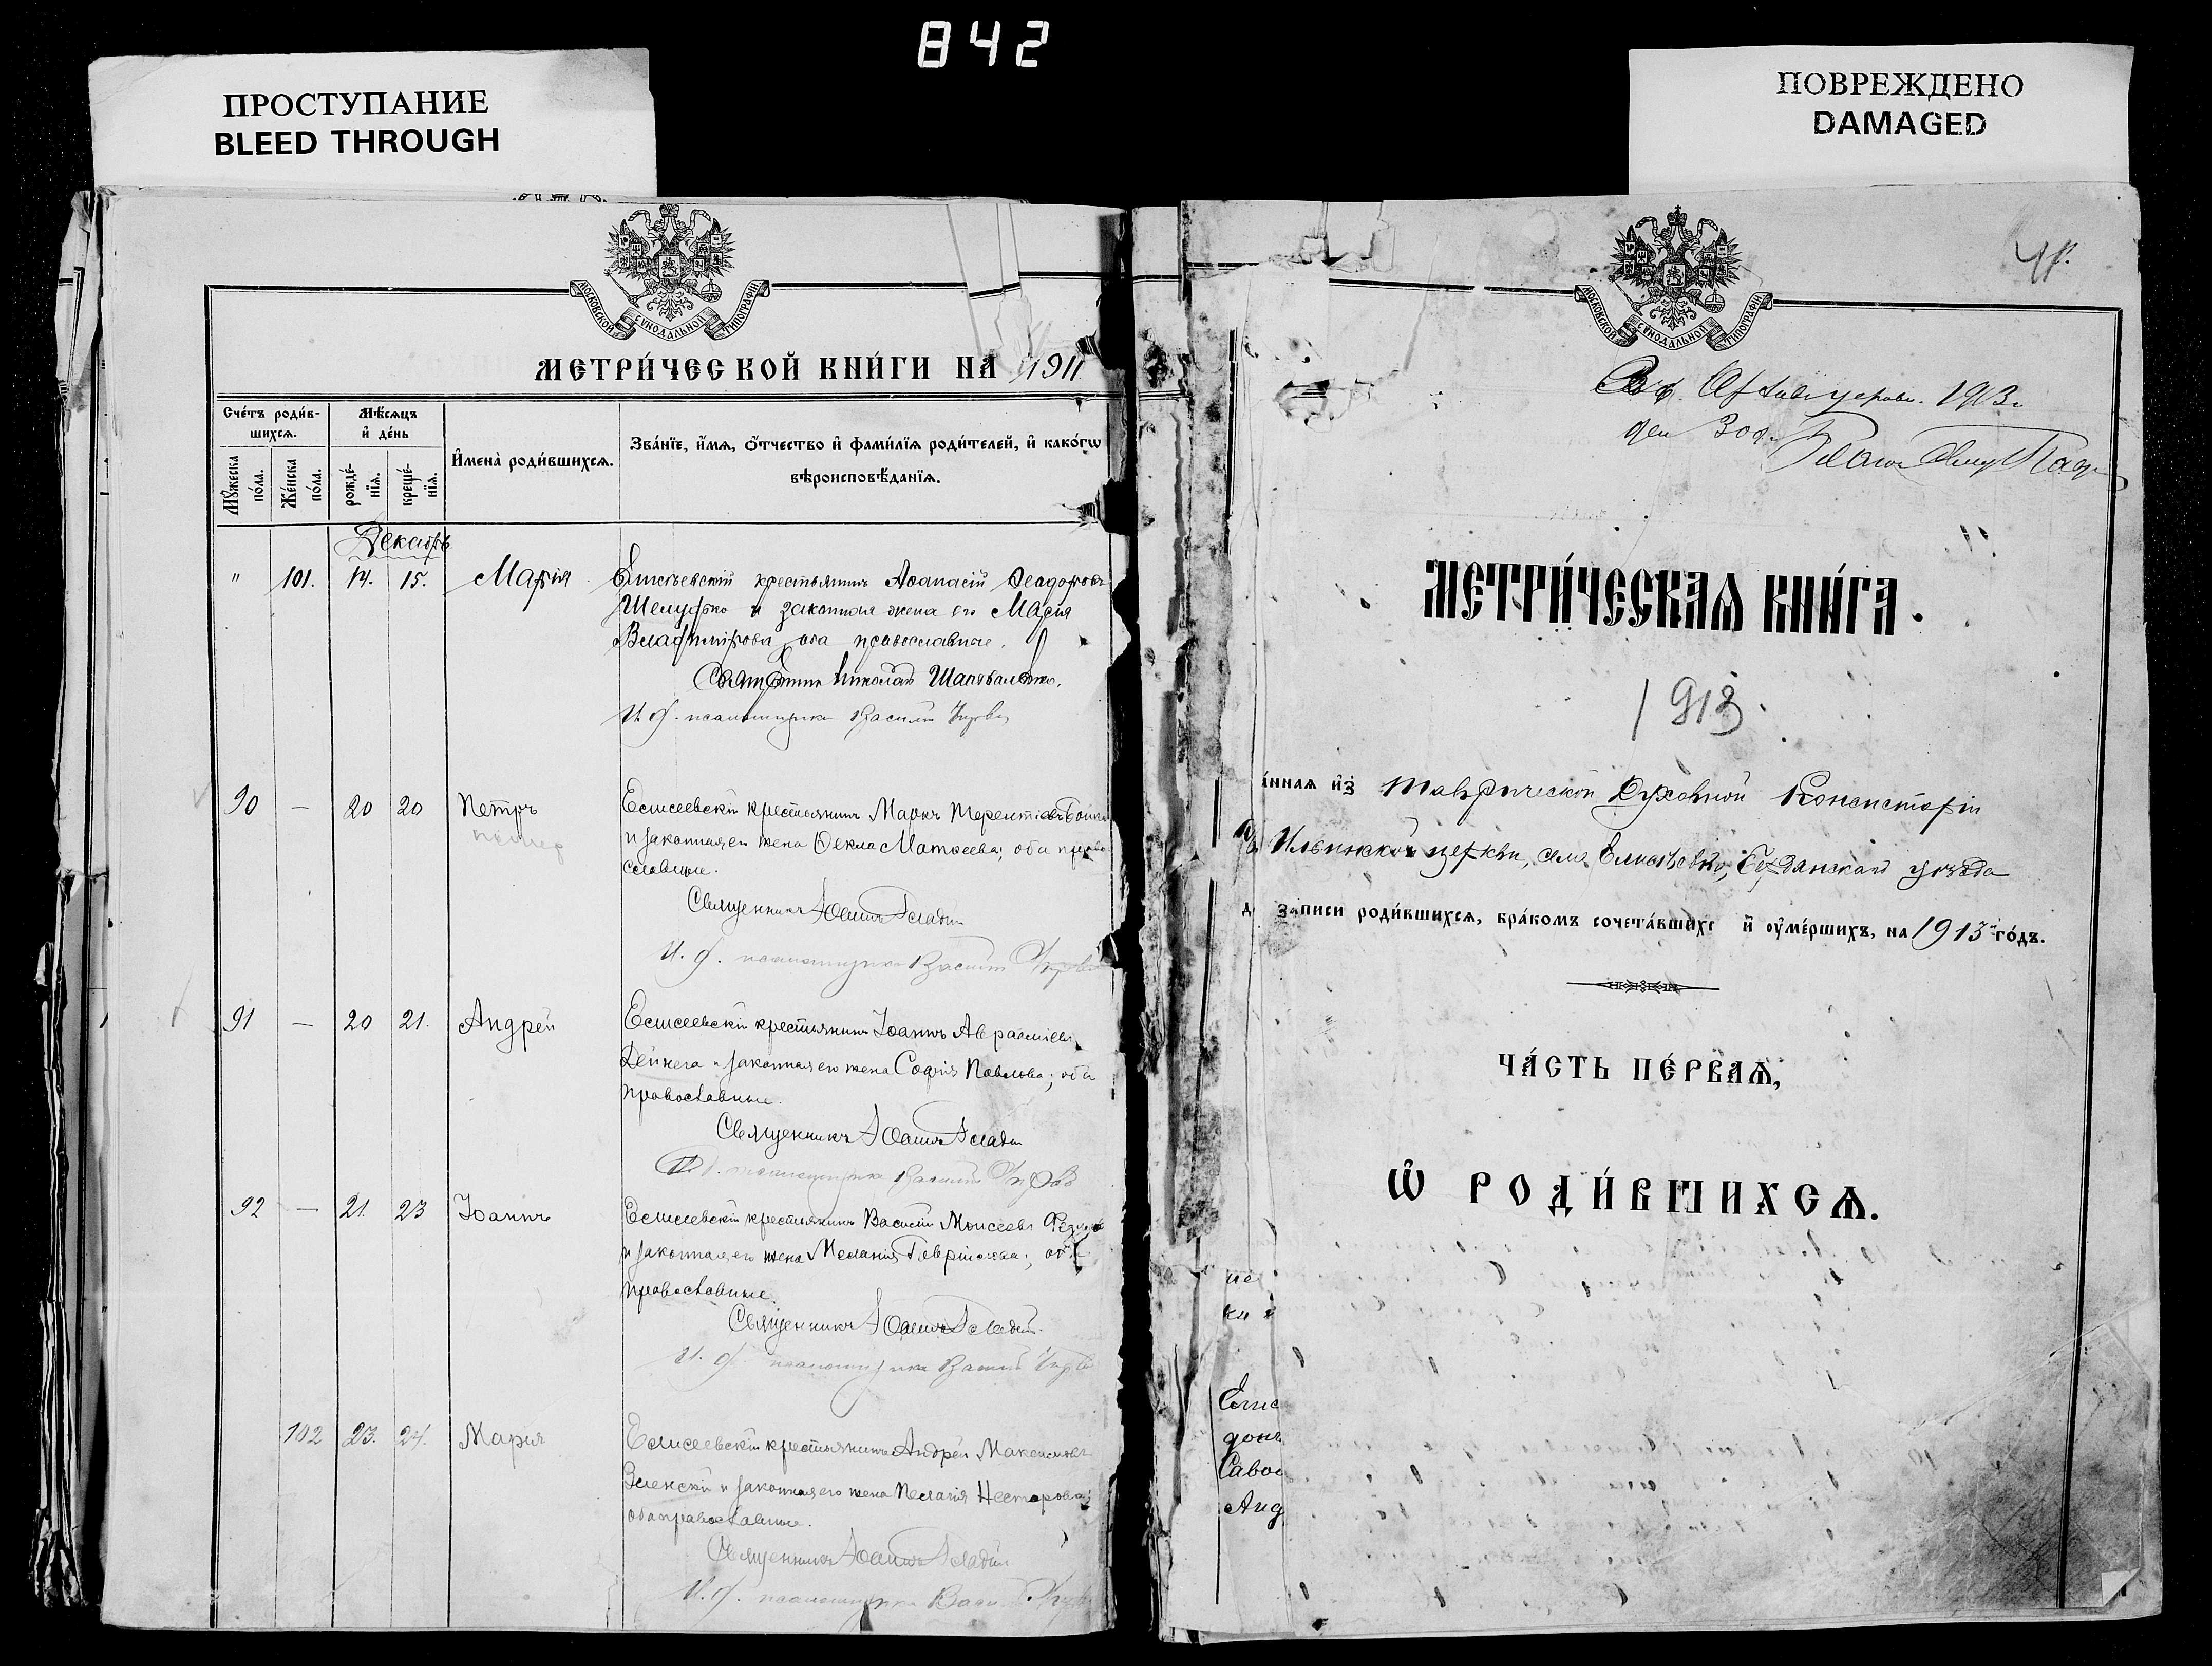 842
ПРОСТУПАНИЕ
BLEED THROUGH
ПОВРЕЖДЕНО
DAMAGED
МОСКОВСКОЙ СѴНОДАЛЬНОЙ ТИПОГРАФІИ
МЕТРИ́ЧЕСКОЙ КНИ́ГИ НА 1911
Сче́тъ роди́в-
шихсѧ.
Мꙋ́жеска по́ла.
Же́нска по́ла.
Мѣ́сѧцъ
и҆ де́нь
рожде́-
нїѧ.
креще́-
нїѧ.
И҆мена̀ роди́вшихсѧ.
Зва́нїе, и҆́мѧ, ѻ҆́тчество и҆ фами́лїѧ роди́телей, и҆ како́гѡ
вѣроисповѣ́данїѧ.
Декабрь
" 101. 14. 15. Марія
крестьянинъ Аѳанасій Ѳеодоровъ
и законная жена его Марія
Владимірова оба православные.
Священникъ Николай Шаповаленко.
И. д. псаломщика Василій
90 — 20 20 Петръ
Елисеевскій крестьянинъ Маркъ Терентіевъ
и законная его жена Ѳекла Матѳеева; оба право
славные.
Священникъ Іоаннъ
И. д. псаломщика Василій
91 — 20 21. Андрей
Елисеевскій крестьянинъ Іоаннъ Аврааміевъ
Дейнега и законная его жена Софія Павлова; оба
православные.
Священникъ Іоаннъ
И. д. псаломщика Василій
92 — 21. 23 Іоаннъ
Елисеевскій крестьянинъ Василій Моисеевъ
и законная его жена Меланія Гавріилова; оба
православные.
Священникъ Іоаннъ
И. д. псаломщика Василій
102 23. 24. Марія
Елисеевскій крестьянинъ Андрей Максимовъ
Зеленскій и законная его жена Пелагія Нестерова;
оба православные.
Священникъ Іоаннъ
И. д. псаломщика
МОСКОВСКОЙ СѴНОДАЛЬНОЙ ТИПОГРАФІИ
1913
МЕТРИ́ЧЕСКАѦ КНИ́ГА.
1913.
а́ннаѧ и҆з̾ Таврической Духовной Консисторіи
Ильинской церкви, села Елисѣевки, Бердянскаго уѣзда
д записи роди́вшихсѧ, бра́комъ сочета́вшихс и҆ ᲂу҆ме́ршихъ, на 1913 го́дъ.
ЧА́СТЬ ПЕ́РВАѦ,
Ѡ҆ РОДИ́ВШИХСѦ.
Елис
Савос
Анд